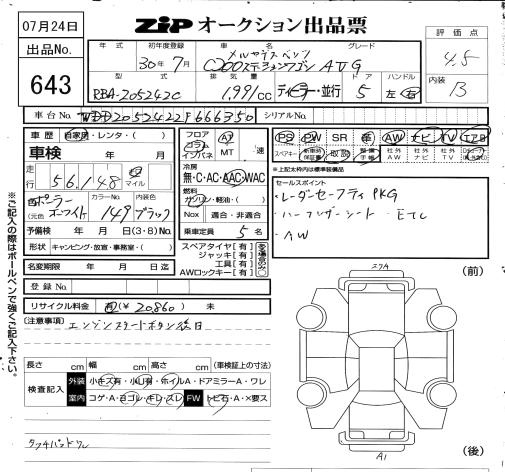 07月24日
ZIP オークション出品票
出品No.
643
年式
初年度登録
車名
グレード
30年7月
メルセデスベンツ
C200ステーションワゴン AVG
型式
排気量
ドア
ハンドル
RBA-205242C
1,991cc
ディーラー・並行
5
左 右
評価点
4.5
内装
B
車台No.
WDD2052422F666350
シリアルNo.
車歴
自家用・レンタ・( )
車検
年 月 日
走行
56,148
マイル
色
ポーラーホワイト
(元色 )
カラーNo.
149
内装色
ブラック
予備検
年 月 日(3・8)No.
形状
キャンピング・放宣・事務室・( )
名変期限
年 月 日迄
登録No.
リサイクル料金
有(¥20,860) 未
フロア
コラム
インパネ
AT
MT
速
冷房
無・C・AC・AAC・WAC
燃料
ガソリン・軽油・( )
Nox
適合・非適合
乗車定員
5名
スペアタイヤ[有]
ジャッキ[有]
工具[有]
AWロックキー[有]
PS PW SR 革 AW ナビ TV エアB
スペアキー
取説
社外AW
社外ナビ
社外TV
*上記太わくは標準装備品
セールスポイント
・レーダーセーフティPKG
・ハーフレザーシート ・ETC
・AW
(注意事項)
エンジンスタートボタン後日
長さ cm 幅 cm 高さ cm (車検証上の寸法)
検査記入
外装
小キズ有・小凹有・ホイルA・ドアミラーA・ワレ
室内
コゲ・A・ヨゴレ・キレ・スレ
FW
トビ石・A・×要ス
タッチパッドワレ
※ご記入の際はボールペンで強くご記入下さい。
(前)
(後)
A1